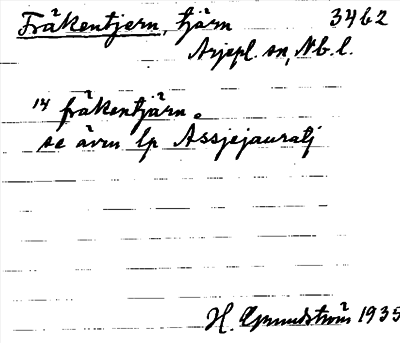 Fräkentjern, tjärn 3462
Arjepl. sn, Nb. l.
14 fräkentjärn.
se även lp Assjejauratj
H. Grundström 1935